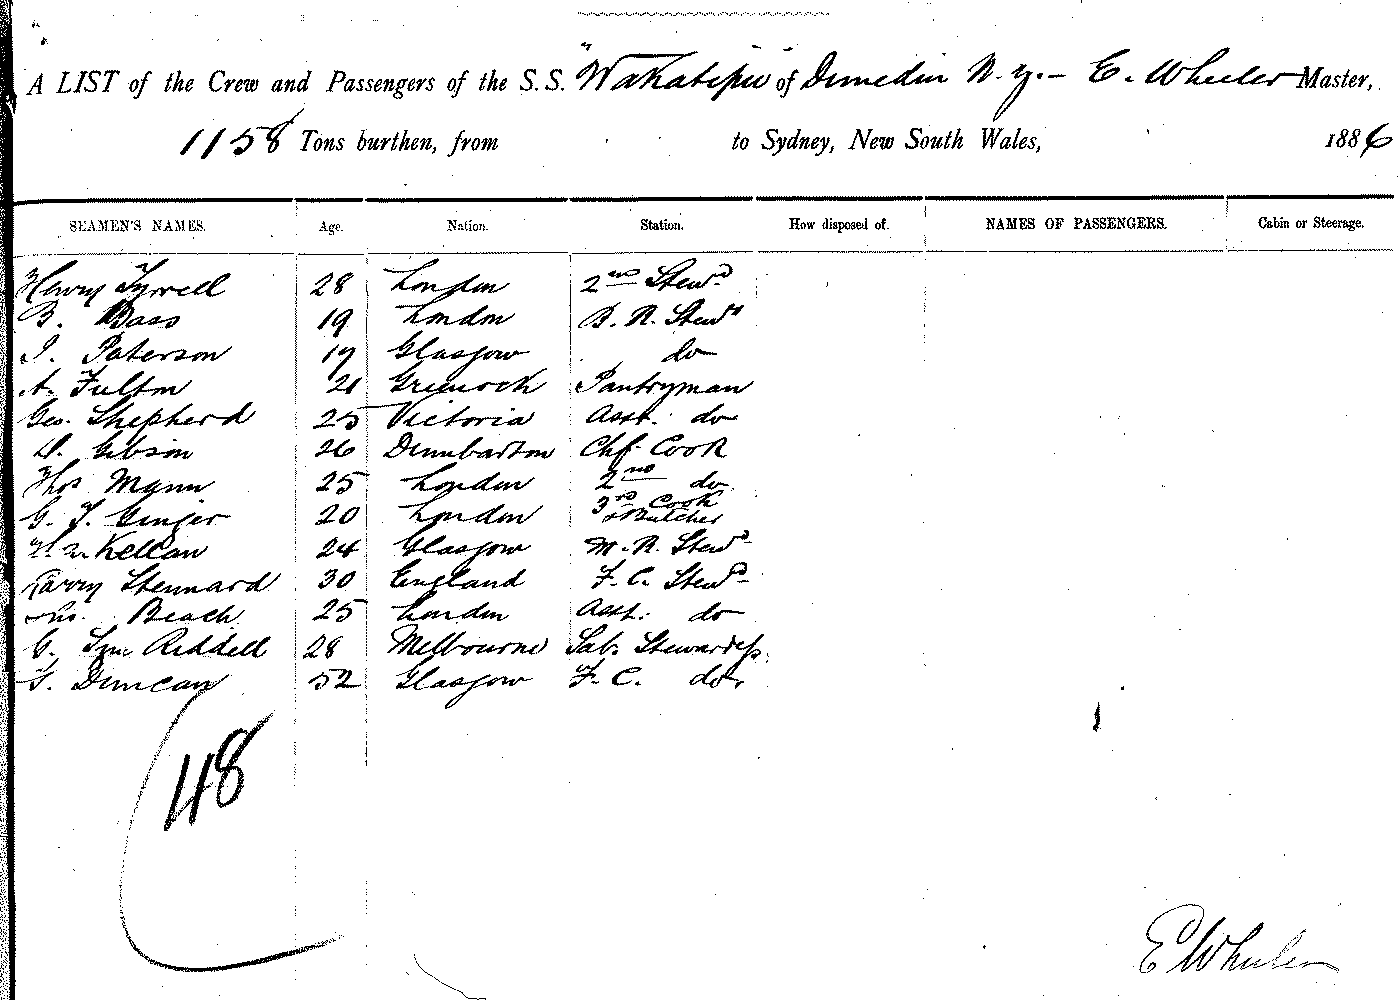 A LIST of the Crew and Passengers of the S.S. "Wakatipu" of Dunedin N.Z. – E. Wheeler Master,
1158 Tons burthen, from to Sydney, New South Wales, 1886
SEAMEN'S NAMES. Age. Nation. Station. How disposed of. NAMES OF PASSENGERS. Cabin or Steerage.
Henry Tyrrell 28 London 2nd Stewd
B. Bass 19 London B. R. Stewd
J. Paterson 19 Glasgow do
A. Fulton 21 Greenock Pantryman
Geo. Shepherd 25 Victoria Asst. do
D. Gibson 26 Dumbarton Chf Cook
Thos Mann 25 London 2nd do
G. F. Ginger 20 London 3rd Cook & Butcher
Kellan 24 Glasgow M. R. Stewd
Harry Stennard 30 England F. C. Stewd
Beach 25 London Asst. do
Riddell 28 Melbourne Sal. Stewardess
F. Duncan 52 Glasgow F. C. do
48
E Wheeler